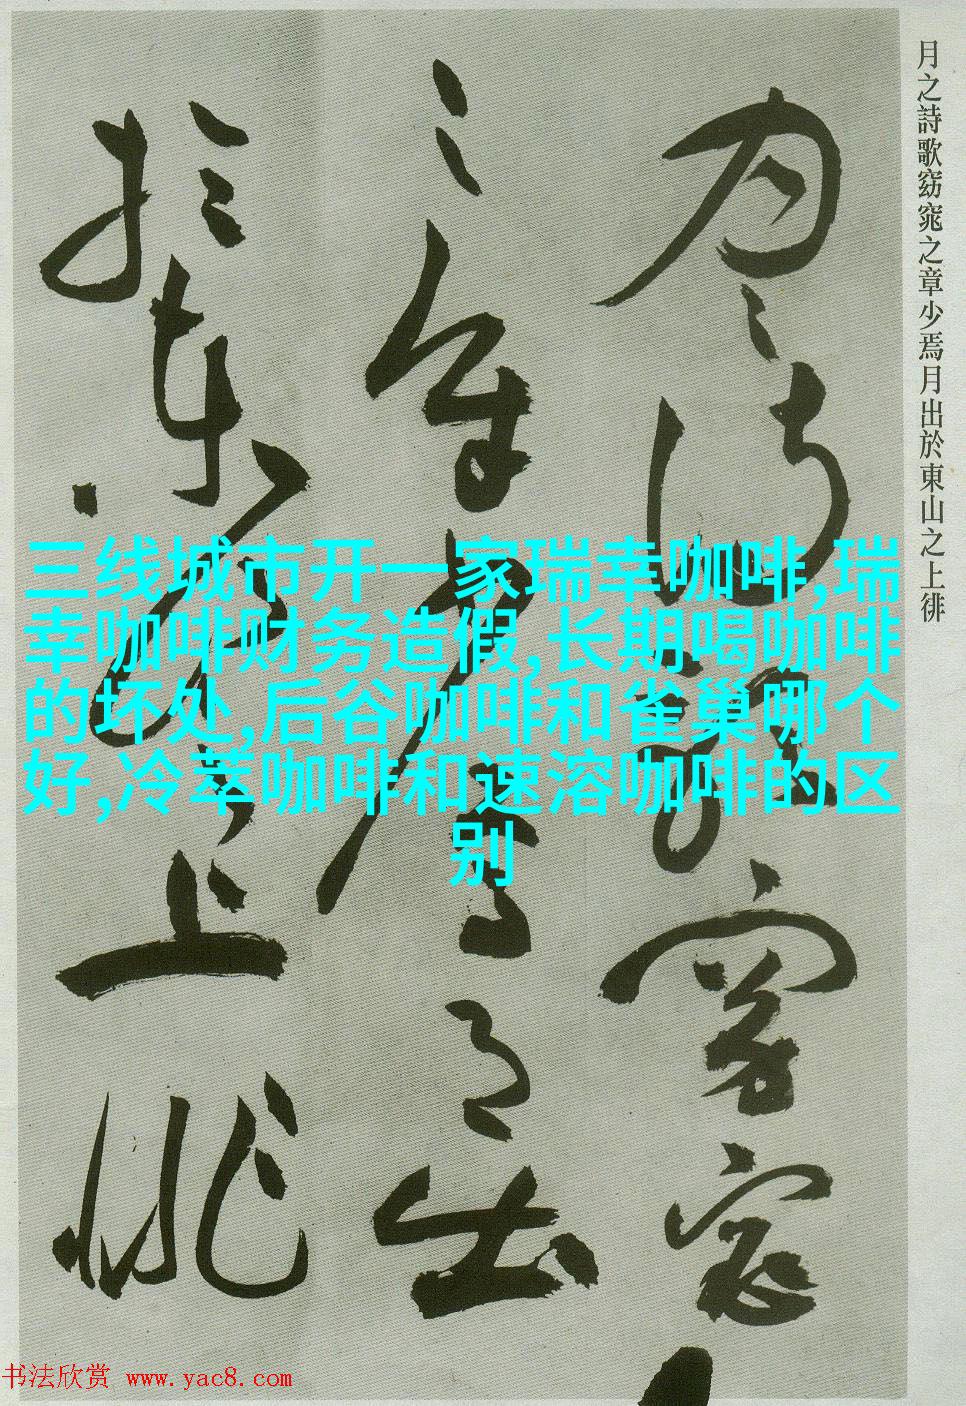 月之詩歌窈窕之章少焉月出於東山之上徘
三线城市开一家瑞幸咖啡,瑞
幸咖啡财务造假,长期喝咖啡
的坏处,后谷咖啡和雀巢哪个
好,冷萃咖啡和速溶咖啡的区
别
月之詩歌窈窕
之章少焉月出
於東山之上徘
书法欣赏 www.yac8.com